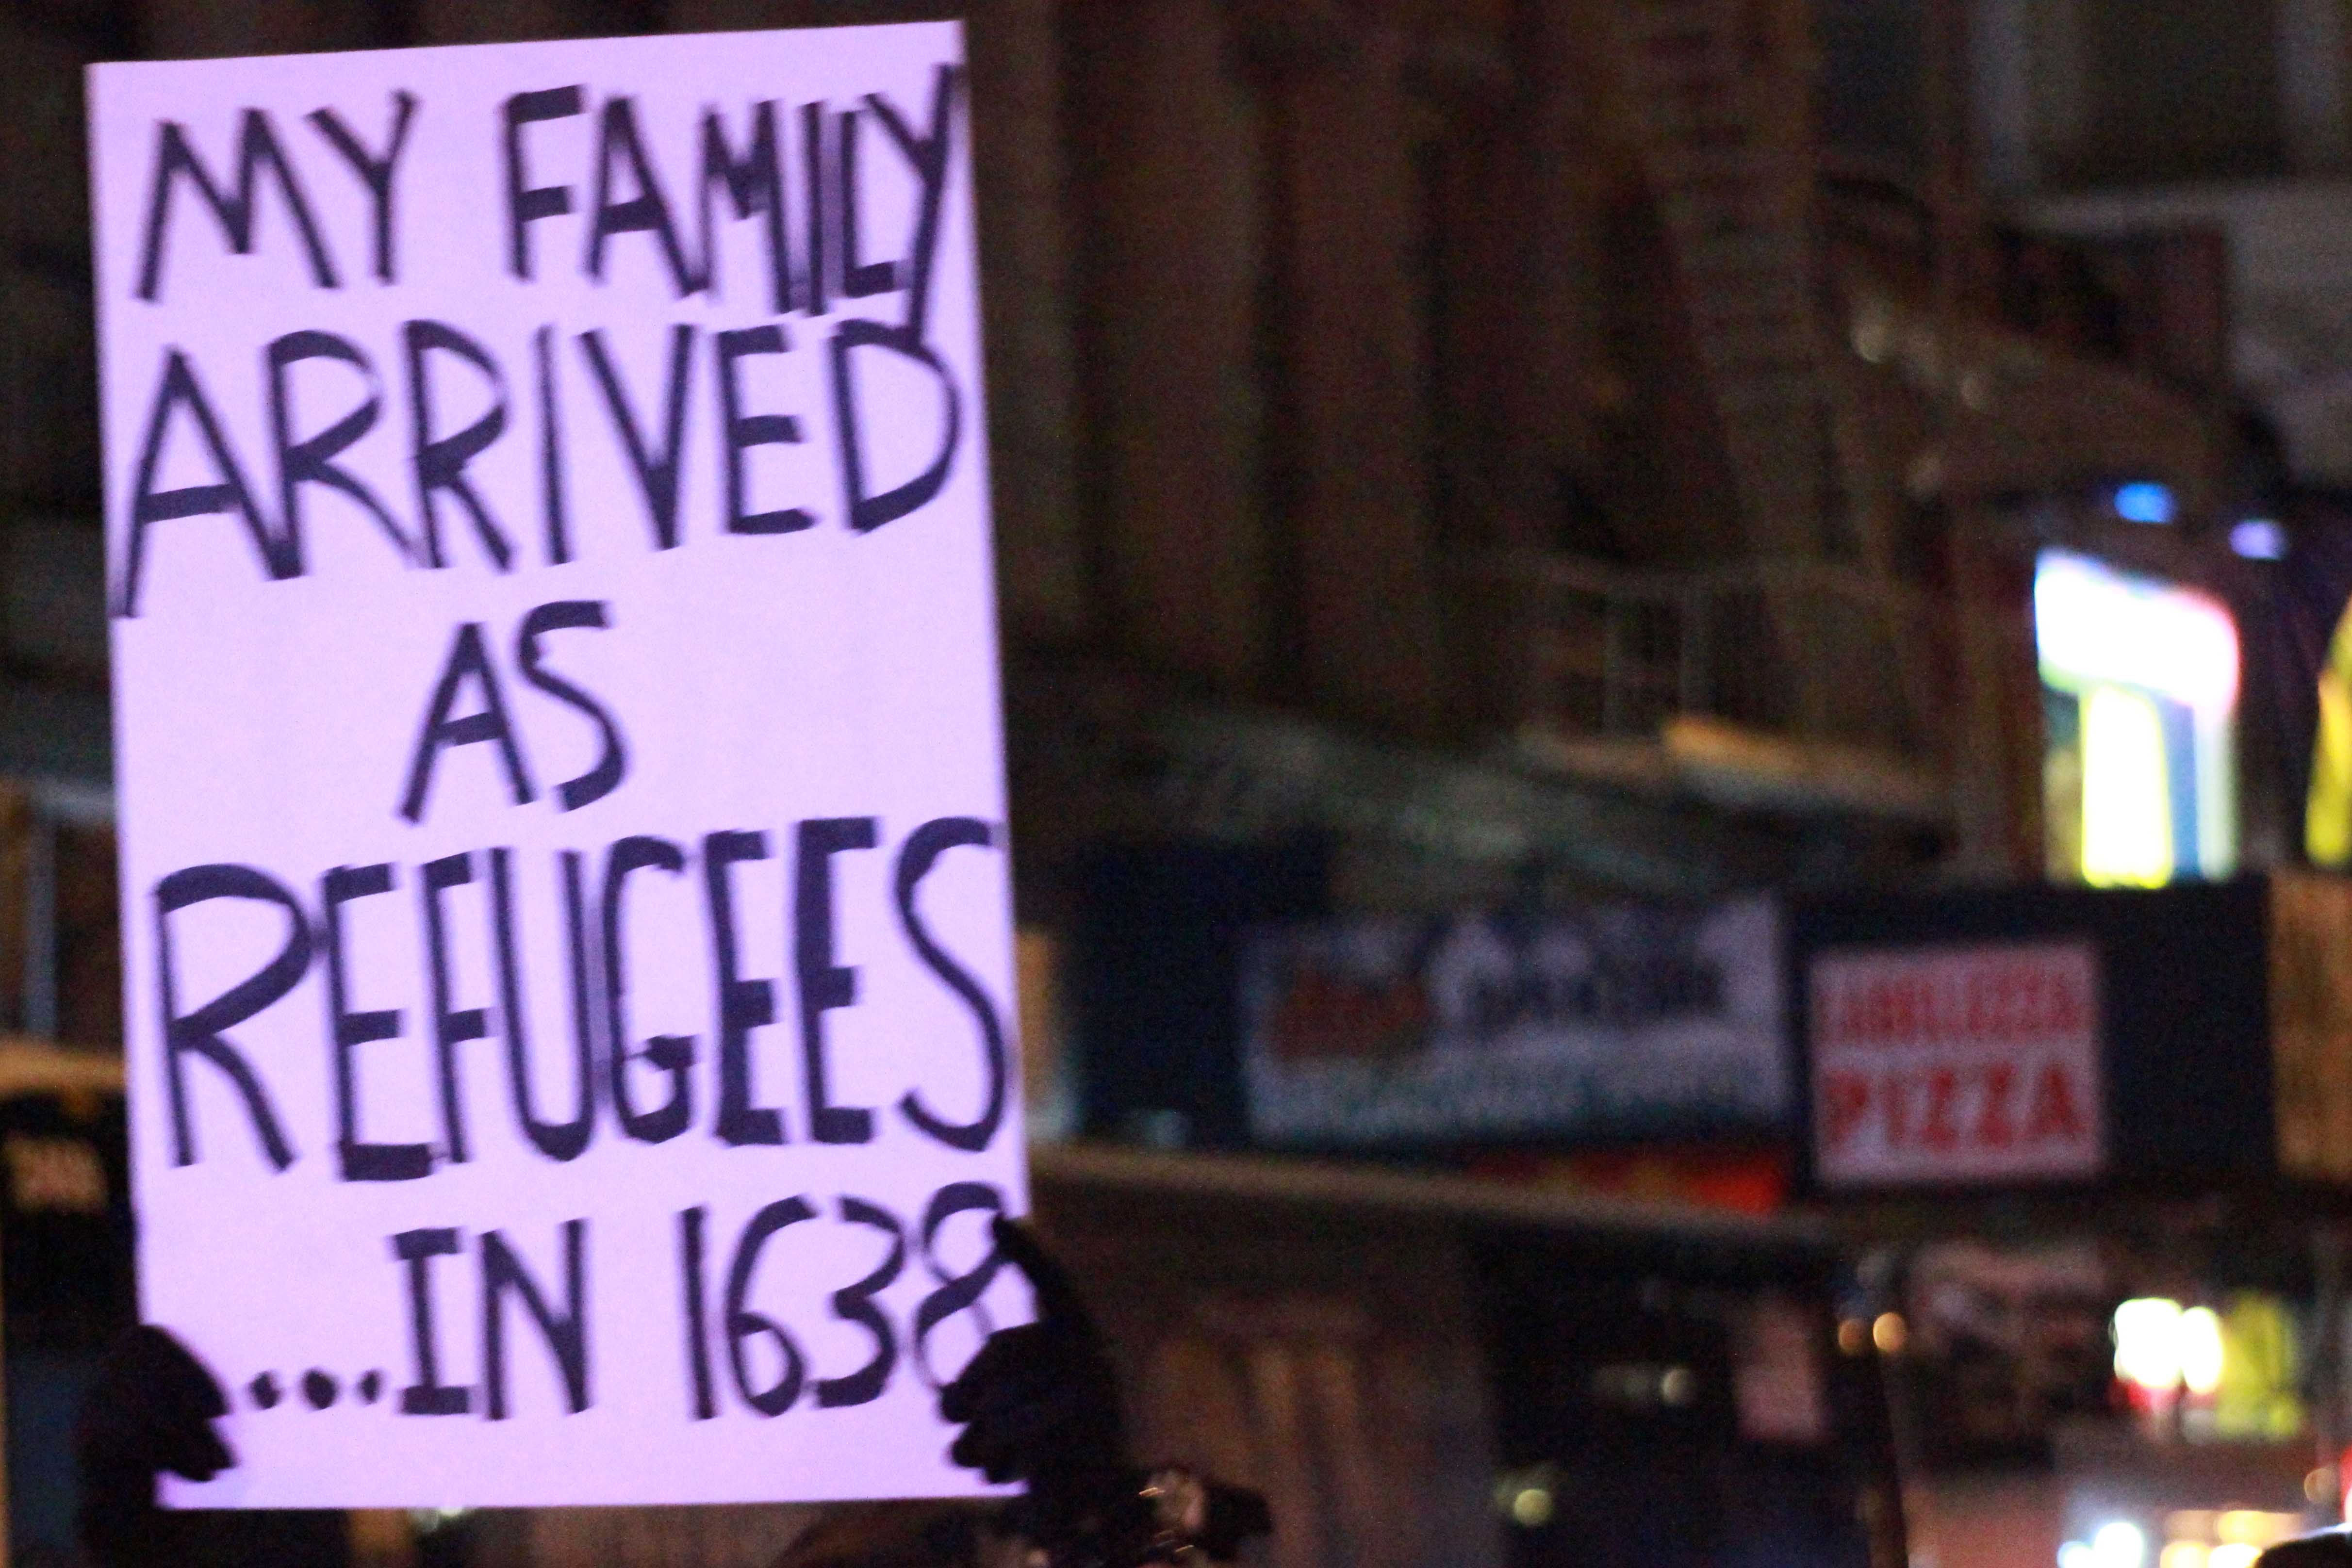 MY FAMILY
ARRIVED
AS
REFUGEES
...IN 1638
PIZZA